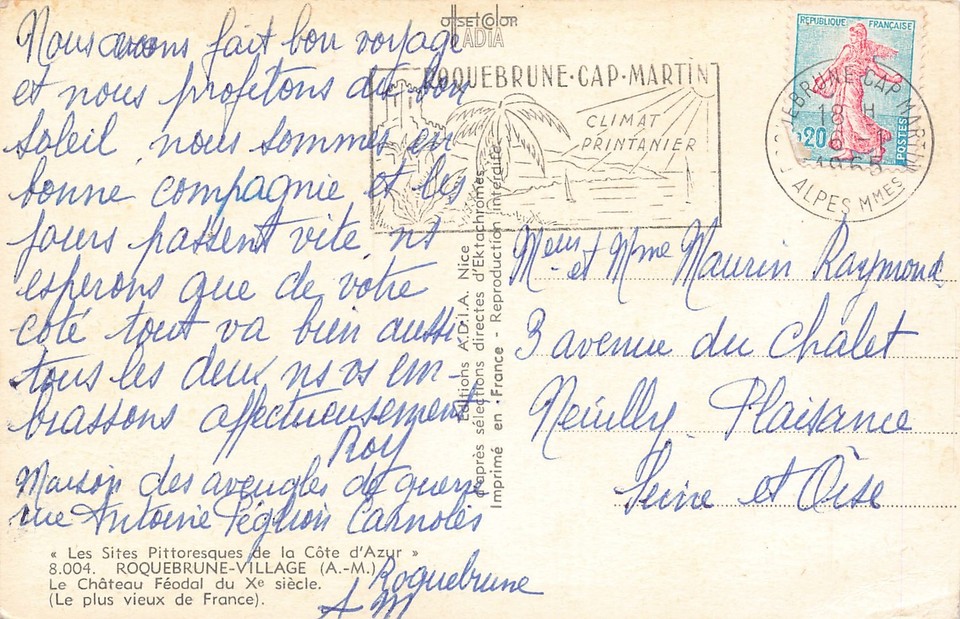 Nous avons fait bon voyage
et nous profitons du bon
soleil nous sommes en
bonne compagnie et les
jours passent vite ns
esperons que de votre
coté tout va bien aussi
tous les deux ns vs em-
brassons affectueusement
Roy
Maison des aveugles de guerre
rue Antoine Péglion Carnolès
Roquebrune
A M
« Les Sites Pittoresques de la Côte d'Azur »
8.004. ROQUEBRUNE-VILLAGE (A.-M.)
Le Château Féodal du Xe siècle.
(Le plus vieux de France).
offset color
ADIA
Editions A.D.I.A. Nice
d'après sélections directes d'Ektachromes
Imprimé en France - Reproduction interdite
ROQUEBRUNE·CAP·MARTIN
CLIMAT
PRINTANIER
REPUBLIQUE FRANÇAISE
0,20
POSTES
ROQUEBRUNE-CAP MARTIN
18 H
1965
ALPES MMES
Meur et Mme Maurin Raymond
3 avenue du Châlet
Neuilly Plaisance
Seine et Oise